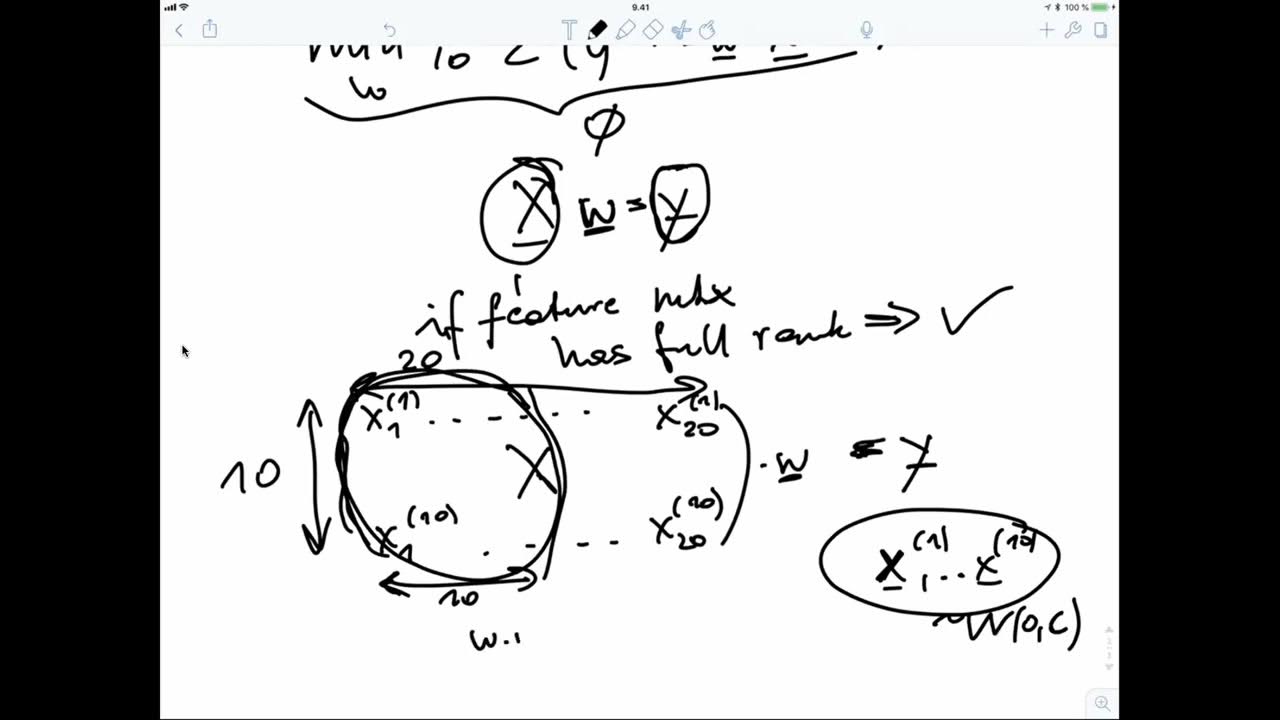 9.41
100 %
T
w
Φ
X w = y
if feature mtx
has full rank ⇒ ✓
20
x₁⁽¹⁾ . . - - - . . x₂₀⁽¹⁾
10 X · w = y
x₁⁽¹⁰⁾ . - . - - x₂₀⁽¹⁰⁾
x⁽¹⁾, .. x⁽¹⁰⁾
10
~N(0,C)
w.